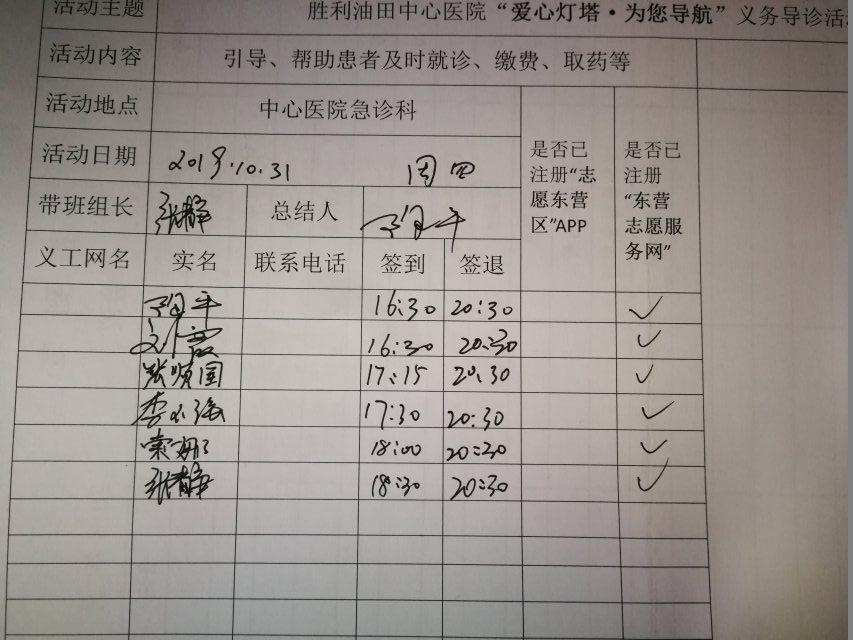 活动主题 胜利油田中心医院“爱心灯塔·为您导航”义务导诊活
活动内容 引导、帮助患者及时就诊、缴费、取药等
活动地点 中心医院急诊科
活动日期 2019.10.31 周四
是否已注册“志愿东营区”APP
是否已注册“东营志愿服务网”
带班组长 张静 总结人
义工网名 实名 联系电话 签到 签退
16:30 20:30 ✓
16:30 20:30 ✓
张顺国 17:15 20:30 ✓
李小海 17:30 20:30 ✓
18:00 ✓
张静 18:30 20:30 ✓